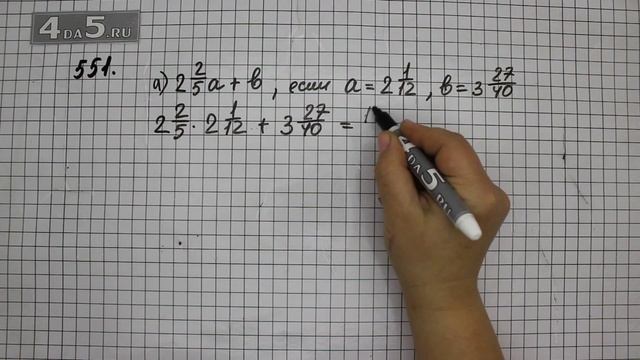 4 DA 5.RU
551.
а) 2 2/5 а + в , если а = 2 1/12 , в = 3 27/40
2 2/5 · 2 1/12 + 3 27/40 = 1
4 DA 5.RU